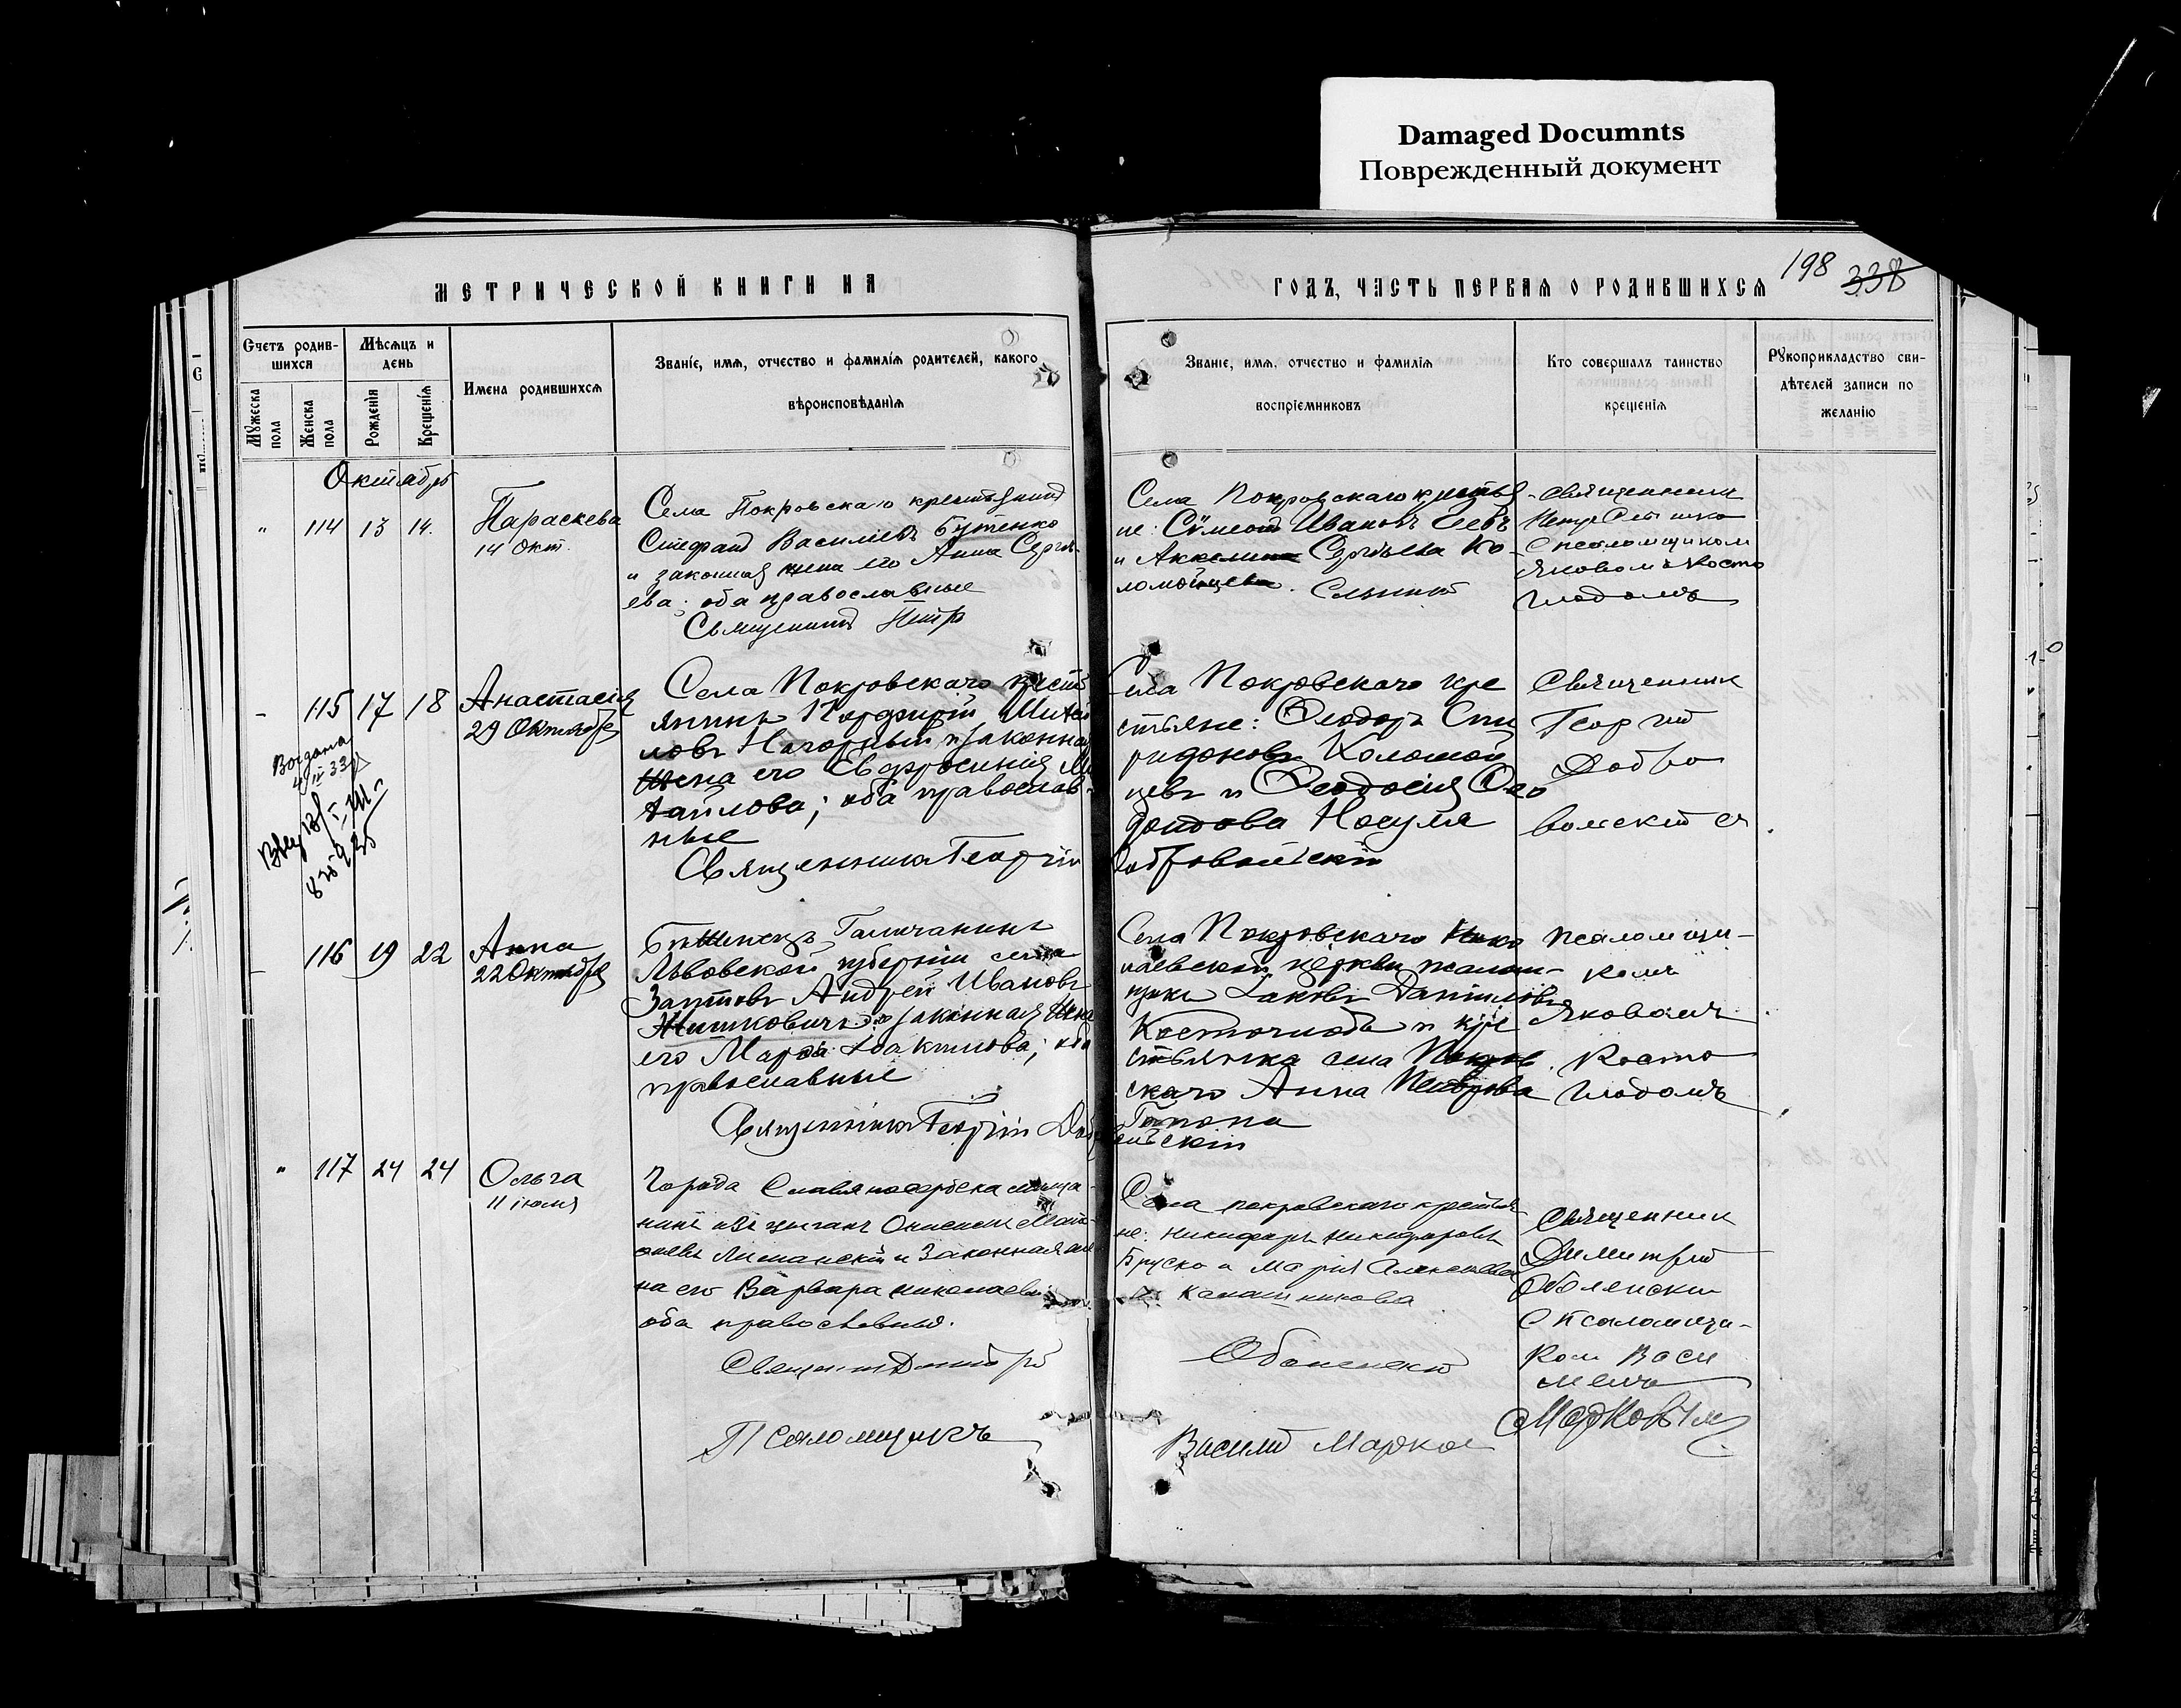 Damaged Documnts
Поврежденный документ
198 338
МЕТРИЧЕСКОЙ КНИГИ НА
ГОДЪ, ЧАСТЬ ПЕРВАЯ О РОДИВШИХСЯ
Счетъ родив-
шихся
Мѣсяцъ и
день
Имена родившихся
Званіе, имя, отчество и фамилія родителей, какого
вѣроисповѣданія
Мужеска
пола
Женска
пола
Рожденія
Крещенія
Званіе, имя, отчество и фамилія
воспріемниковъ
Кто совершалъ таинство
крещенія
Рукоприкладство сви-
дѣтелей записи по
желанію
Октябрь
" 114 13 14.
Параскева
14 Окт.
Села Покровскаго крестьянинъ
Стефанъ Василіевъ Бутенко
и законная жена его Анна Сергѣ-
ева; оба православные
Священникъ Петръ
Села Покровскаго крестья-
не: Сѵмеонъ Ивановъ
и Акилина Сергѣева Ко-
ломойцева.
Священникъ
Петръ
с псаломщикомъ
Яковомъ Косто
глодомъ
- 115 17 18
Анастасія
29 Октября
Села Покровскаго крест
янинъ Порфирій Михаи
ловъ Нагорный и законная
жена его Евфросинія Ми
хаилова; оба православ-
ные
Священникъ Георгій
Села Покровскаго кре
стьяне: Ѳеодоръ Спи
ридоновъ Коломой
цевъ и Ѳеодосія
Носуля
Добровольскій
Священник
Георгий
Добро
вольский
Выдана
- 116 19 22
Анна
22 Октября
Бѣженецъ Галичанинъ
Львовской губерніи села
Андрей Ивановъ
законная жена
его Марѳа Іоакимова; оба
православные
Священникъ Георгій Доб
Села Покровскаго Нико
лаевской церкви псалом-
щикъ Іаковъ Даниловъ
Костоглодъ и кре
стьянка села Покров
скаго Анна Петрова
Гапона
вольскій
Псаломщи-
комъ
Яковомъ
Косто
глодомъ
" 117 24 24
Ольга
11 іюля
Города Славяносербска мѣща-
нинъ изъ цыганъ Онисимъ Мат-
ѳіевъ Лиманскій и законная же
на его Варвара Николаева
оба православные.
Священникъ Димитрій
Псаломщикъ
Села Покровскаго крестья-
не: Никифоръ Никифоровъ
Бруско и Марія Алексѣева
Калашникова
Оболенскій
Василий Марков
Священник
Димитрий
Оболенский
с псаломщи-
ком Васи
лиемъ
Марковым